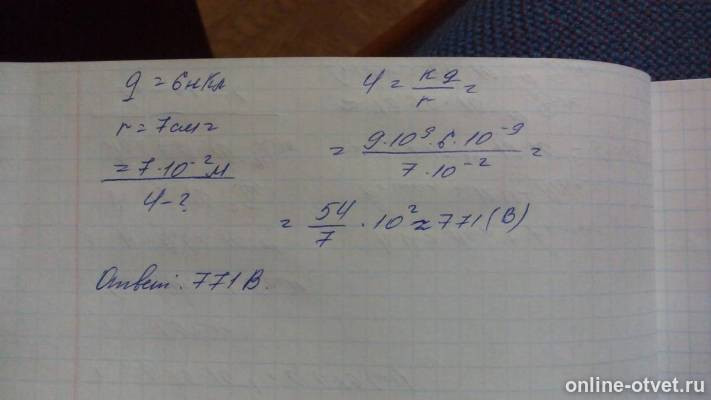 q = 6нКл
r = 7см =
= 7·10⁻² м
φ - ?
φ = kq/r =
= 9·10⁹·6·10⁻⁹/7·10⁻² =
= 54/7 · 10² ≈ 771 (В)
Ответ: 771 В.
online-otvet.ru